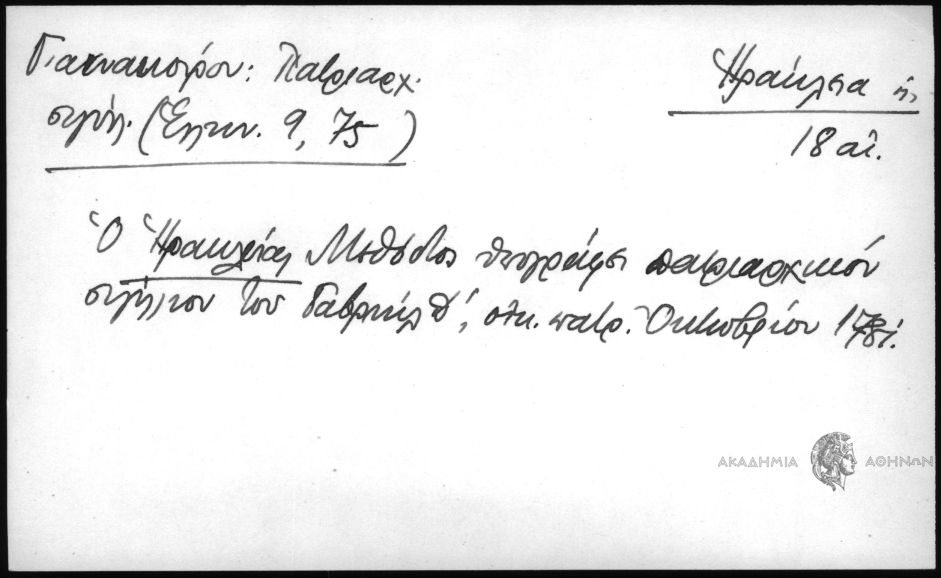 Γιαννακοπούλου: Πατριαρχ.
σιγίλ. (Ἑλλην. 9, 75)
Ἡράκλεια ἡ
18 αἰ.
Ὁ Ἡρακλείας Μεθόδιος ὑπογράφει πατριαρχικόν
σιγίλλιον τοῦ Γαβριήλ Δ', οἰκ. πατρ. Ὀκτωβρίου 1781.
ΑΚΑΔΗΜΙΑ ΑΘΗΝΩΝ